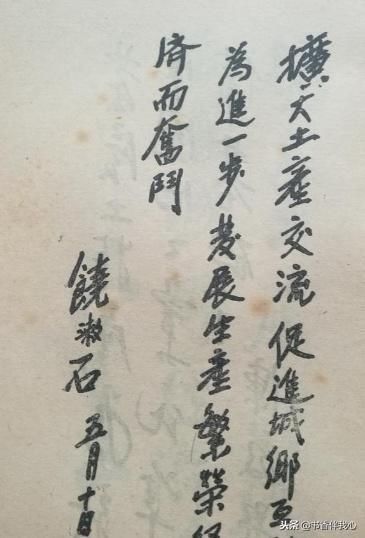 擴大土產交流促進城鄉互
為進一步發展生產繁榮
濟而奮鬥
饒漱石 五月十日
头条 @书香伴我心